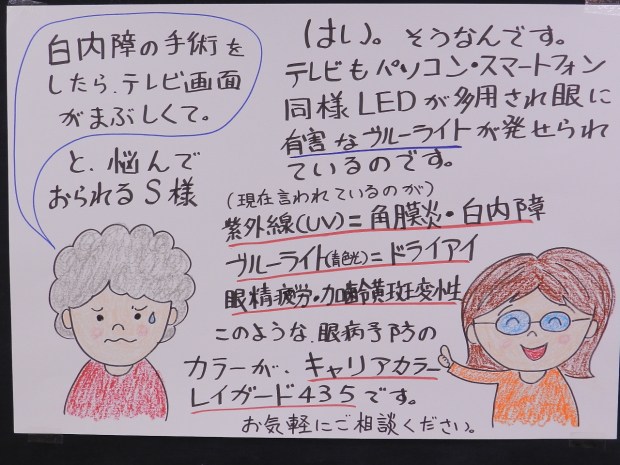 白内障の手術を
したら、テレビ画面
がまぶしくて。
と、悩んで
おられるS様
はい。そうなんです。
テレビもパソコン・スマートフォン
同様LEDが多用され眼に
有害なブルーライトが発せられ
ているのです。
(現在言われているのが)
紫外線(UV)=角膜炎・白内障
ブルーライト(青色光)=ドライアイ
眼精疲労・加齢黄斑変性
このような、眼病予防の
カラーが、キャリアカラー
レイガード435です。
お気軽にご相談ください。